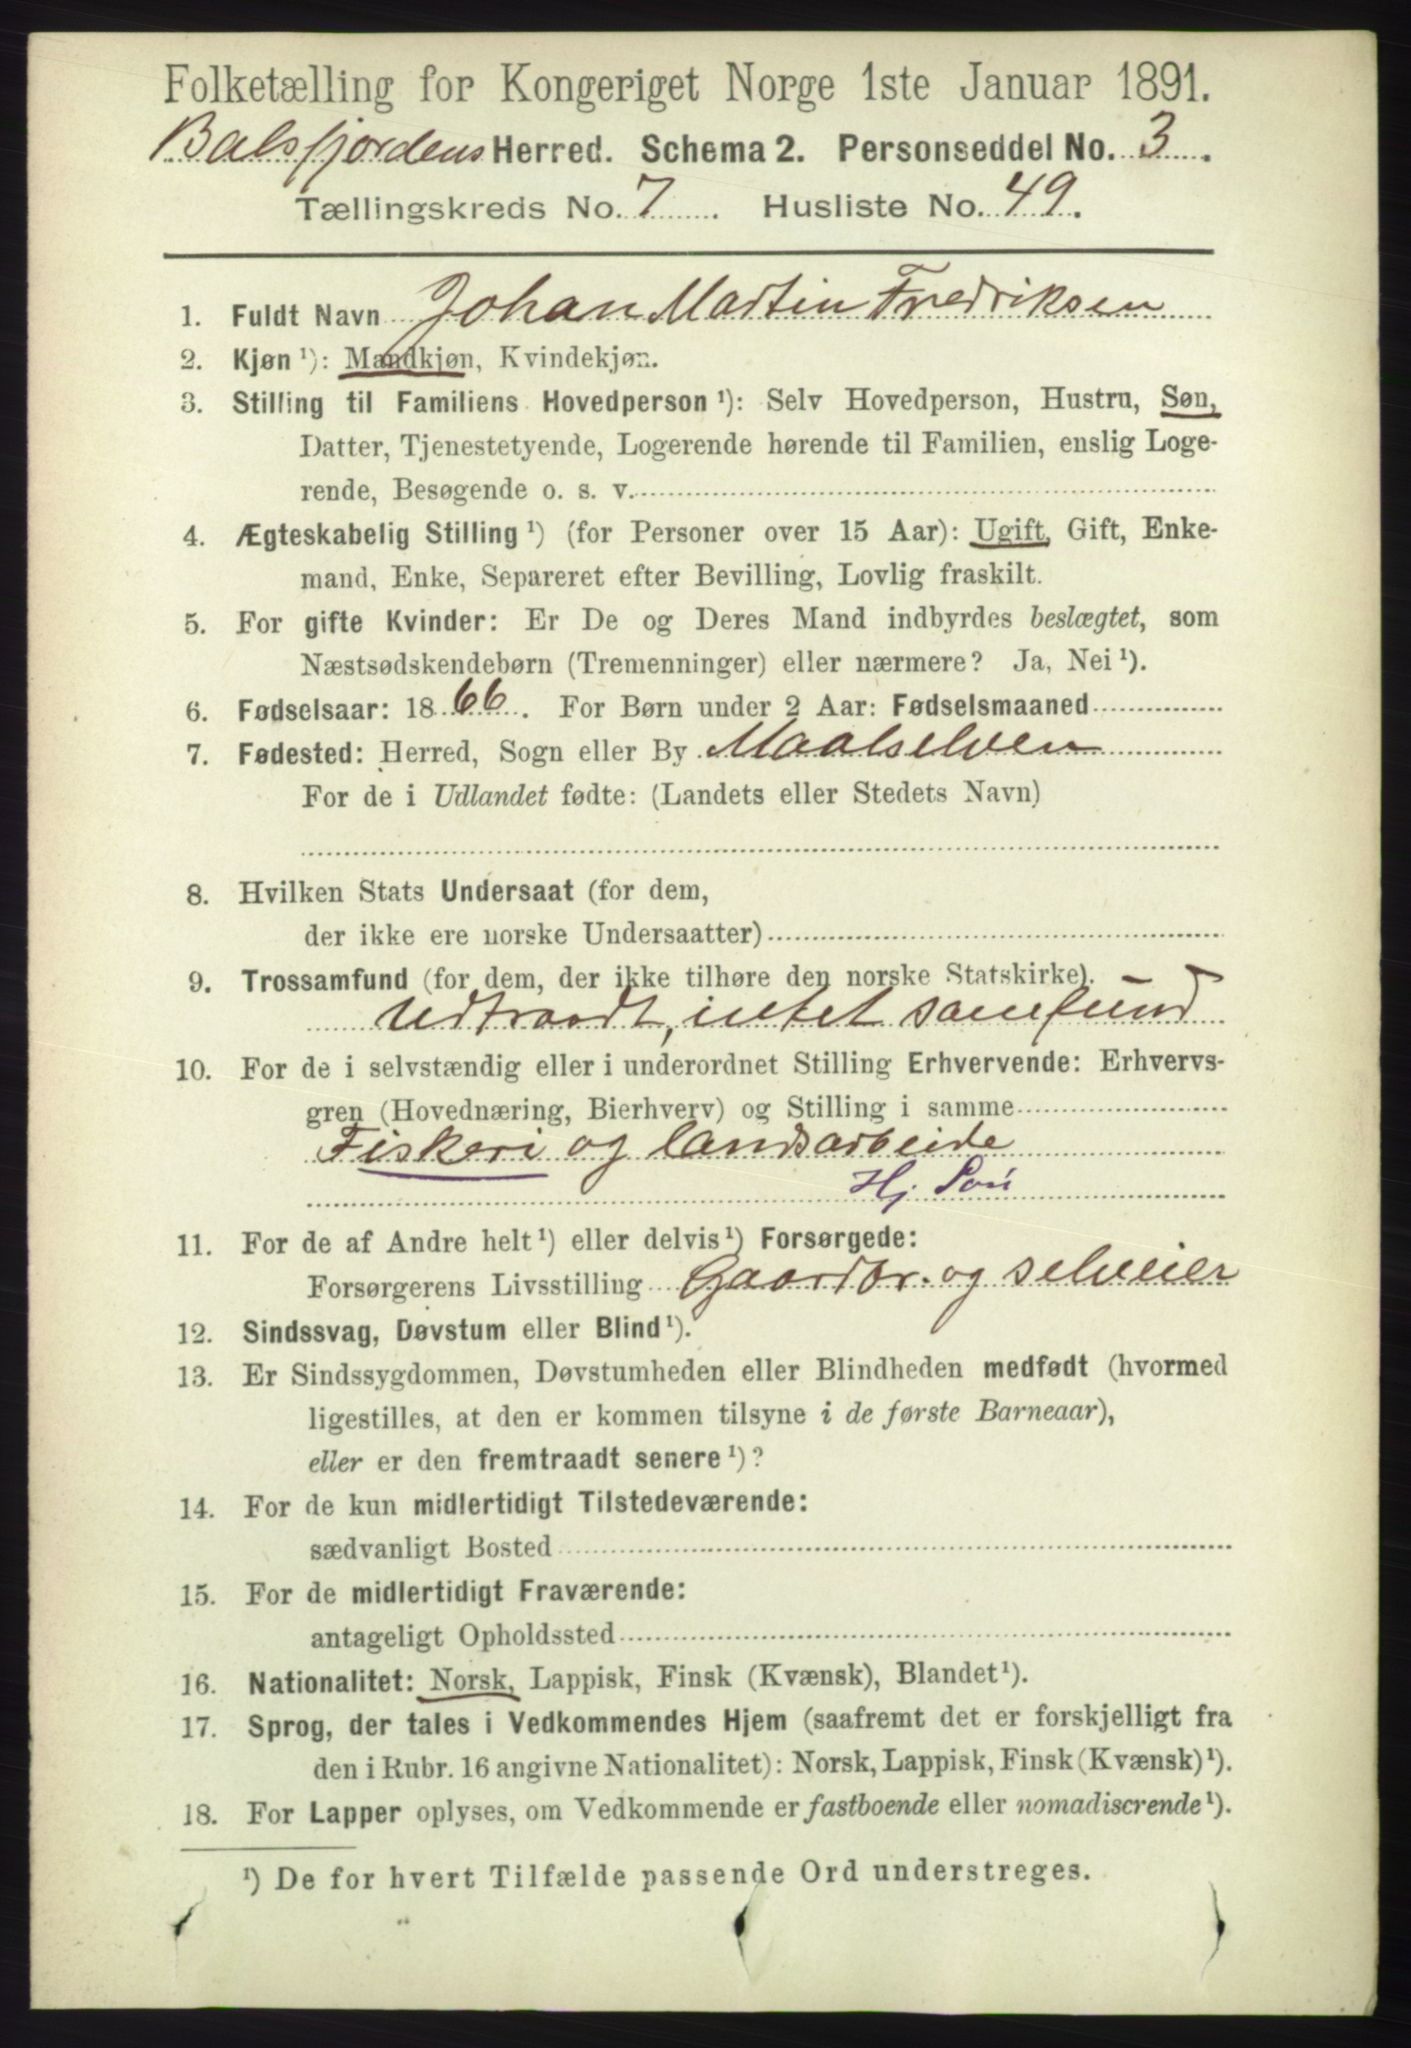 Folketælling for Kongeriget Norge 1ste Januar 1891.
Balsfjordens Herred. Schema 2. Personseddel No. 3.
Tællingskreds No. 7. Husliste No. 49.
1. Fuldt Navn Johan Martin Fredriksen
2. Kjøn ¹): Mandkjøn, Kvindekjøn.
3. Stilling til Familiens Hovedperson ¹): Selv Hovedperson, Hustru, Søn,
Datter, Tjenestetyende, Logerende hørende til Familien, enslig Loge-
rende, Besøgende o. s. v.
4. Ægteskabelig Stilling ¹) (for Personer over 15 Aar): Ugift, Gift, Enke-
mand, Enke, Separeret efter Bevilling, Lovlig fraskilt.
5. For gifte Kvinder: Er De og Deres Mand indbyrdes beslægtet, som
Næstsødskendebørn (Tremenninger) eller nærmere? Ja, Nei ¹).
6. Fødselsaar: 1866. For Børn under 2 Aar: Fødselsmaaned
7. Fødested: Herred, Sogn eller By Maalselven
For de i Udlandet fødte: (Landets eller Stedets Navn)
8. Hvilken Stats Undersaat (for dem,
der ikke ere norske Undersaatter)
9. Trossamfund (for dem, der ikke tilhøre den norske Statskirke).
Udtraadt, intet samfund
10. For de i selvstændig eller i underordnet Stilling Erhvervende: Erhvervs-
gren (Hovednæring, Bierhverv) og Stilling i samme
Fiskeri og landsarbeide
Hj. Søn
11. For de af Andre helt ¹) eller delvis ¹) Forsørgede:
Forsørgerens Livsstilling Gaardbr. og selveier
12. Sindssvag, Døvstum eller Blind ¹).
13. Er Sindssygdommen, Døvstumheden eller Blindheden medfødt (hvormed
ligestilles, at den er kommen tilsyne i de første Barneaar),
eller er den fremtraadt senere ¹)?
14. For de kun midlertidigt Tilstedeværende:
sædvanligt Bosted
15. For de midlertidigt Fraværende:
antageligt Opholdssted
16. Nationalitet: Norsk, Lappisk, Finsk (Kvænsk), Blandet ¹).
17. Sprog, der tales i Vedkommendes Hjem (saafremt det er forskjelligt fra
den i Rubr. 16 angivne Nationalitet): Norsk, Lappisk, Finsk (Kvænsk) ¹).
18. For Lapper oplyses, om Vedkommende er fastboende eller nomadiserende ¹).
¹) De for hvert Tilfælde passende Ord understreges.